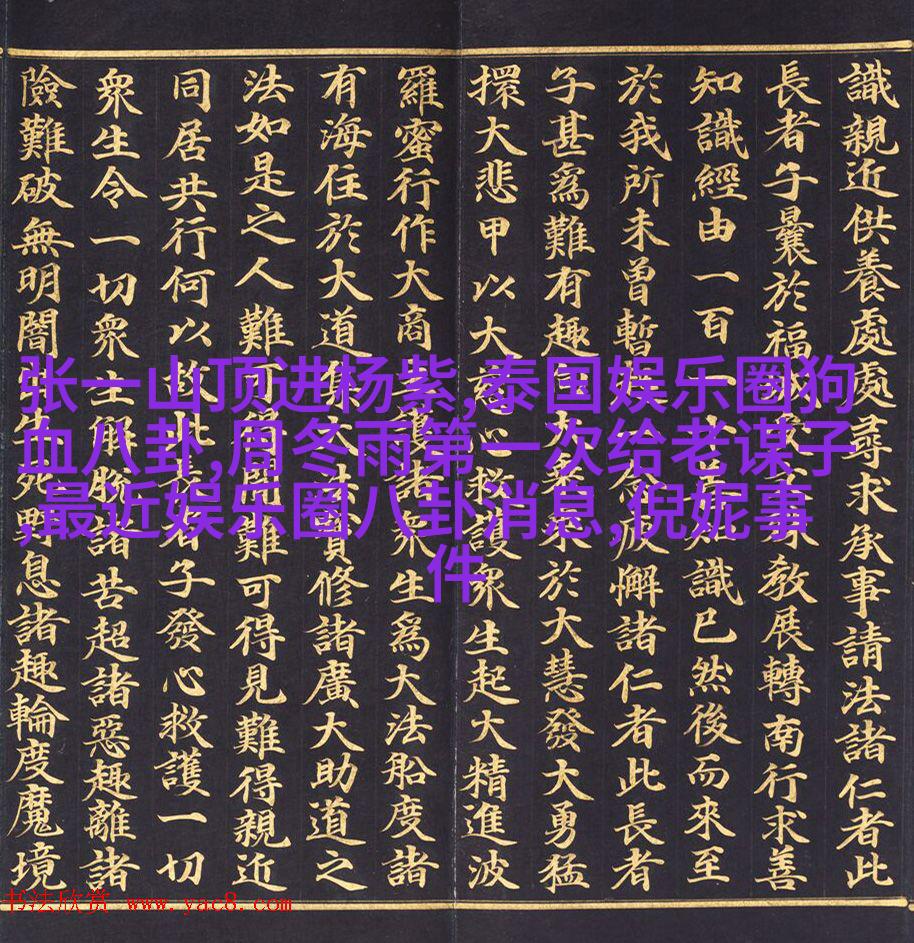 識親近供養處處尋求承事請法諸仁者此
長者子曩於福教展轉南行求善
知識經由一百一識已然後而來至
於我所未曾暫疲懈諸仁者此長者
子甚爲難有趣大於大慧發大勇猛
擐大悲甲以大心救護眾生起大精進波
羅蜜行作大商諸眾生爲大法船度諸
有海住於大道修諸廣大助道之
法如是之人難可得難可得見難得親近
同居共行何以故此者子發心救護一切
衆生令一切衆生解脫諸苦超諸惡趣離諸
險難破無明闇生死野息諸趣輪度魔境
张一山顶进杨紫,泰国娱乐圈狗
血八卦,周冬雨第一次给老谋子
,最近娱乐圈八卦消息,倪妮事
件
书法欣赏 www.yac8.com